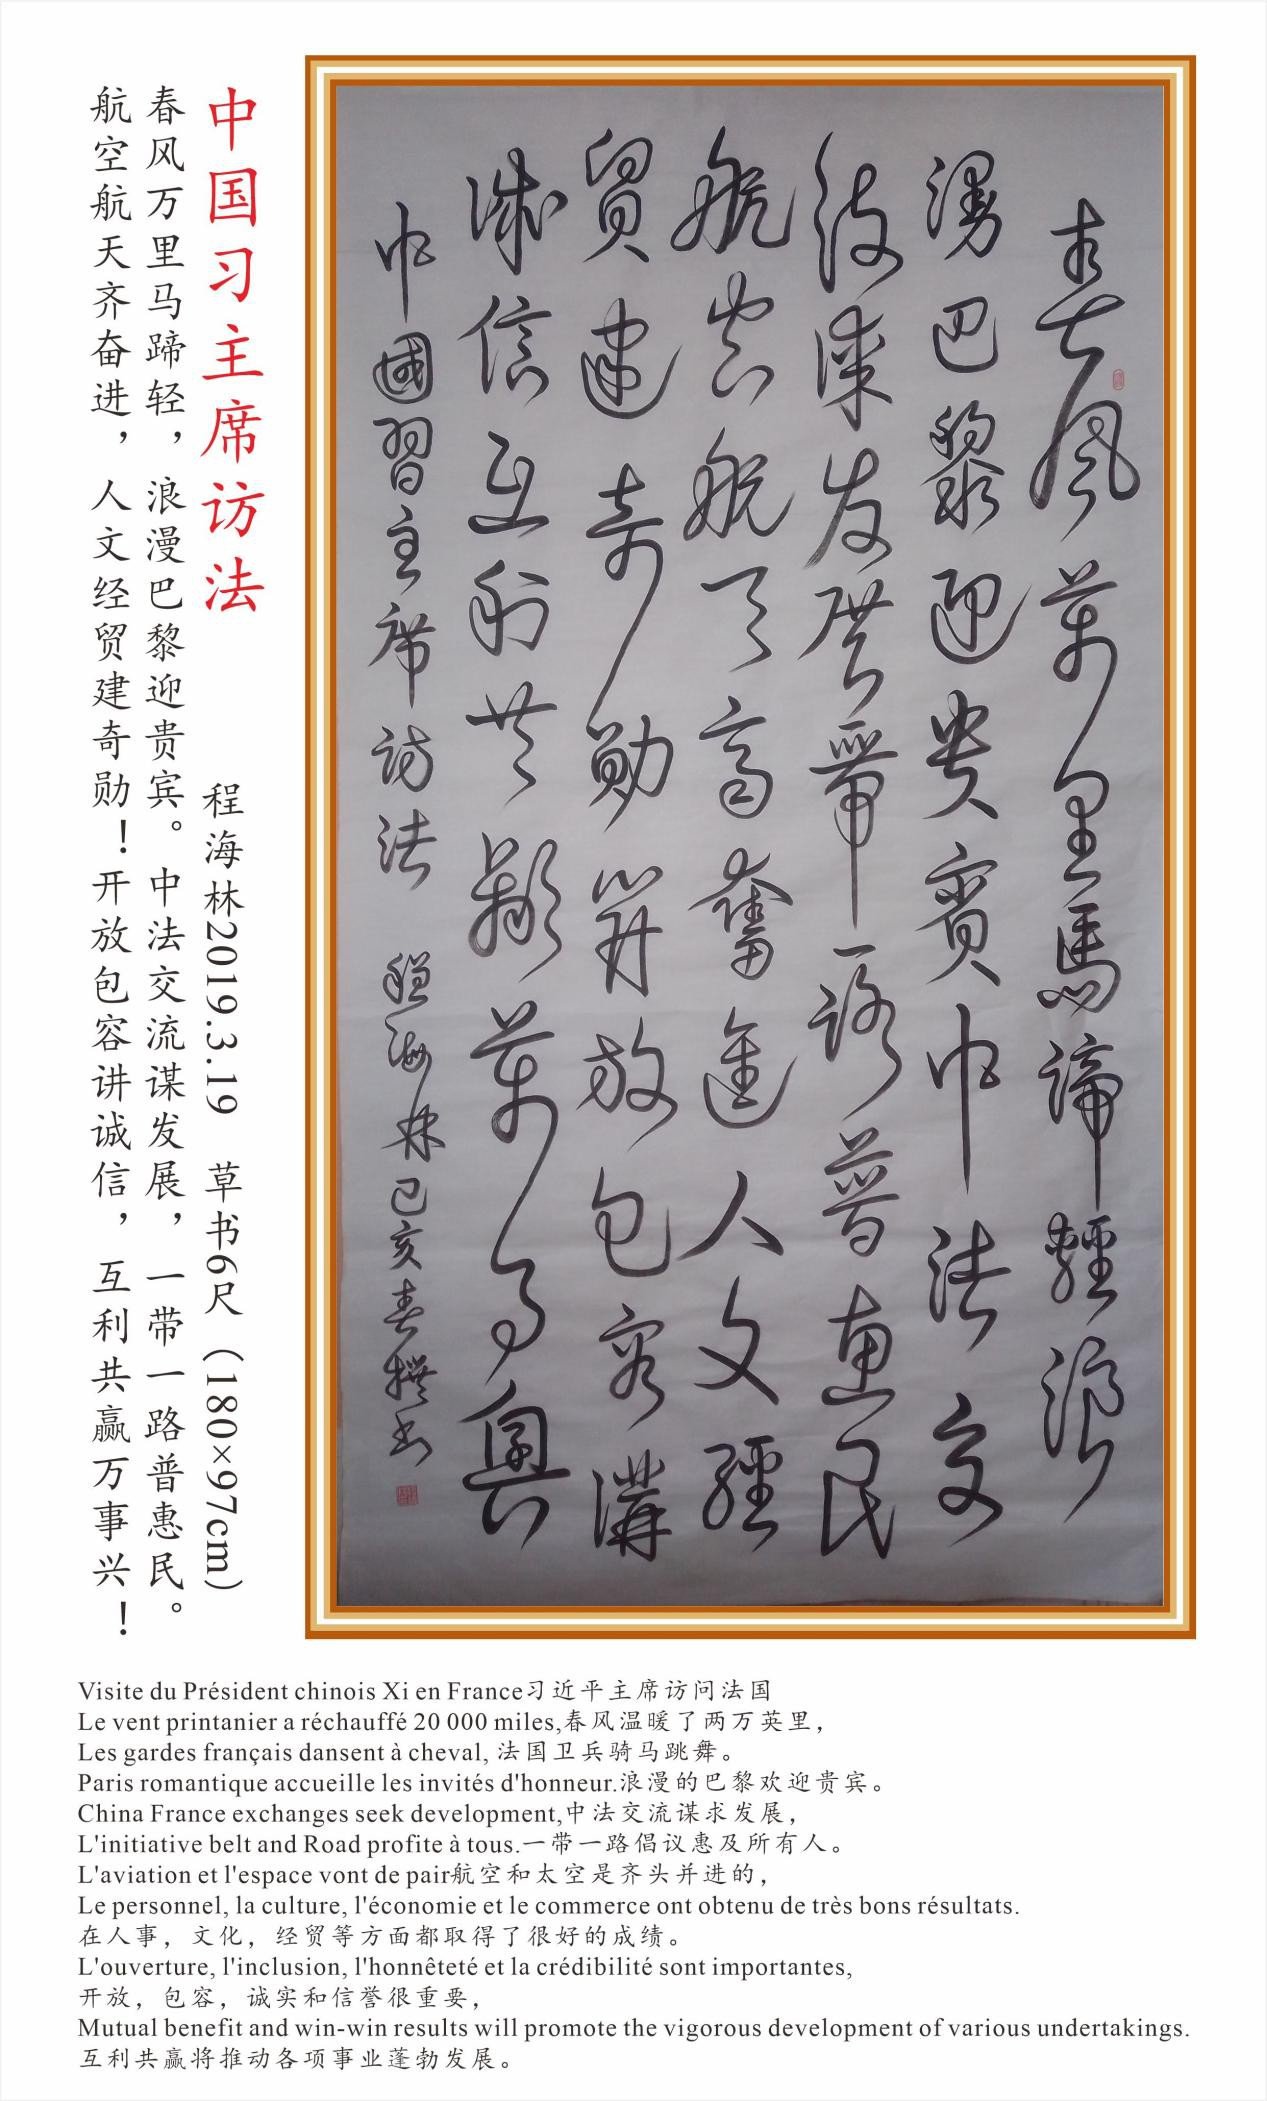 中国习主席访法
程海林2019.3.19 草书6尺（180×97cm）
春风万里马蹄轻，浪漫巴黎迎贵宾。中法交流谋发展，一带一路普惠民。
航空航天齐奋进，人文经贸建奇勋！开放包容讲诚信，互利共赢万事兴！
春風萬里馬蹄輕浪
漫巴黎迎貴賓中法交
流謀发展一帶一路普惠民
航空航天齊奮進人文經
貿建奇勛開放包容講
誠信互利共贏萬事興
中國習主席訪法 程海林己亥春撰书
Visite du Président chinois Xi en France习近平主席访问法国
Le vent printanier a réchauffé 20 000 miles,春风温暖了两万英里，
Les gardes français dansent à cheval, 法国卫兵骑马跳舞。
Paris romantique accueille les invités d'honneur.浪漫的巴黎欢迎贵宾。
China France exchanges seek development,中法交流谋求发展，
L'initiative belt and Road profite à tous.一带一路倡议惠及所有人。
L'aviation et l'espace vont de pair航空和太空是齐头并进的，
Le personnel, la culture, l'économie et le commerce ont obtenu de très bons résultats.
在人事，文化，经贸等方面都取得了很好的成绩。
L'ouverture, l'inclusion, l'honnêteté et la crédibilité sont importantes,
开放，包容，诚实和信誉很重要，
Mutual benefit and win-win results will promote the vigorous development of various undertakings.
互利共赢将推动各项事业蓬勃发展。